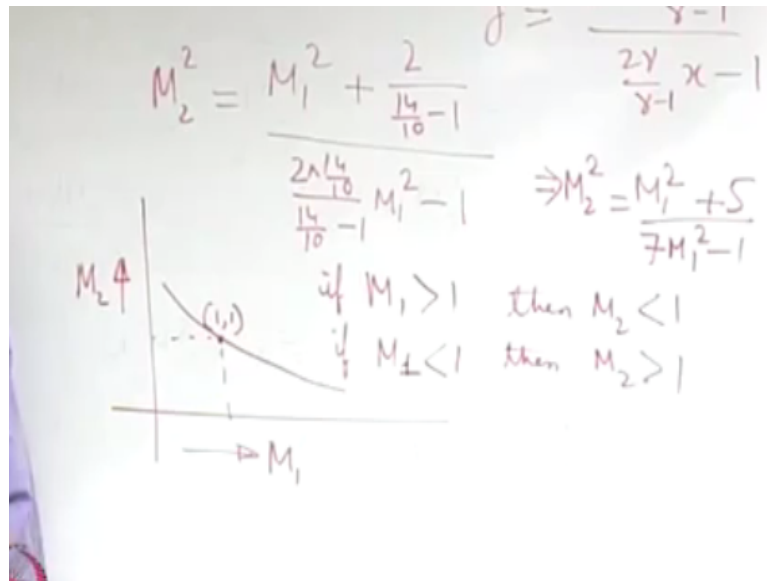 y = γ-1 / (2γ/(γ-1) x - 1)
M₂² = (M₁² + 2/(14/10 - 1)) / ((2×14/10)/(14/10 - 1) M₁² - 1)
⇒ M₂² = (M₁² + 5)/(7M₁² - 1)
if M₁ > 1 then M₂ < 1
if M₁ < 1 then M₂ > 1
M₂ ↑
(1,1)
→ M₁